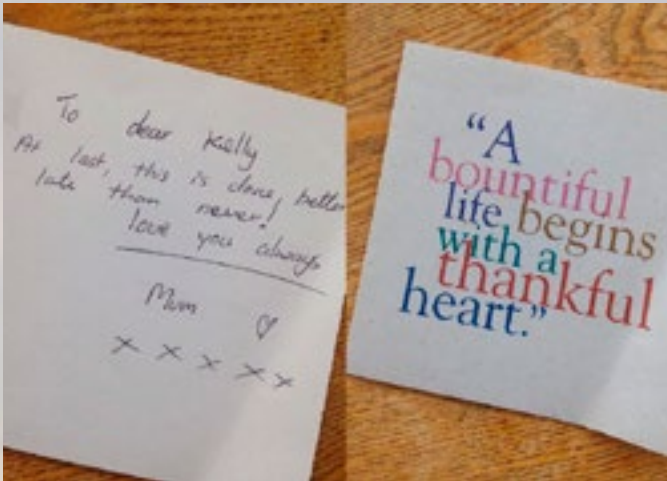 To dear Kelly
At last, this is done, better
late than never!
love you always
Mum ♡
x x x x x
“A
bountiful
life begins
with a
thankful
heart.”